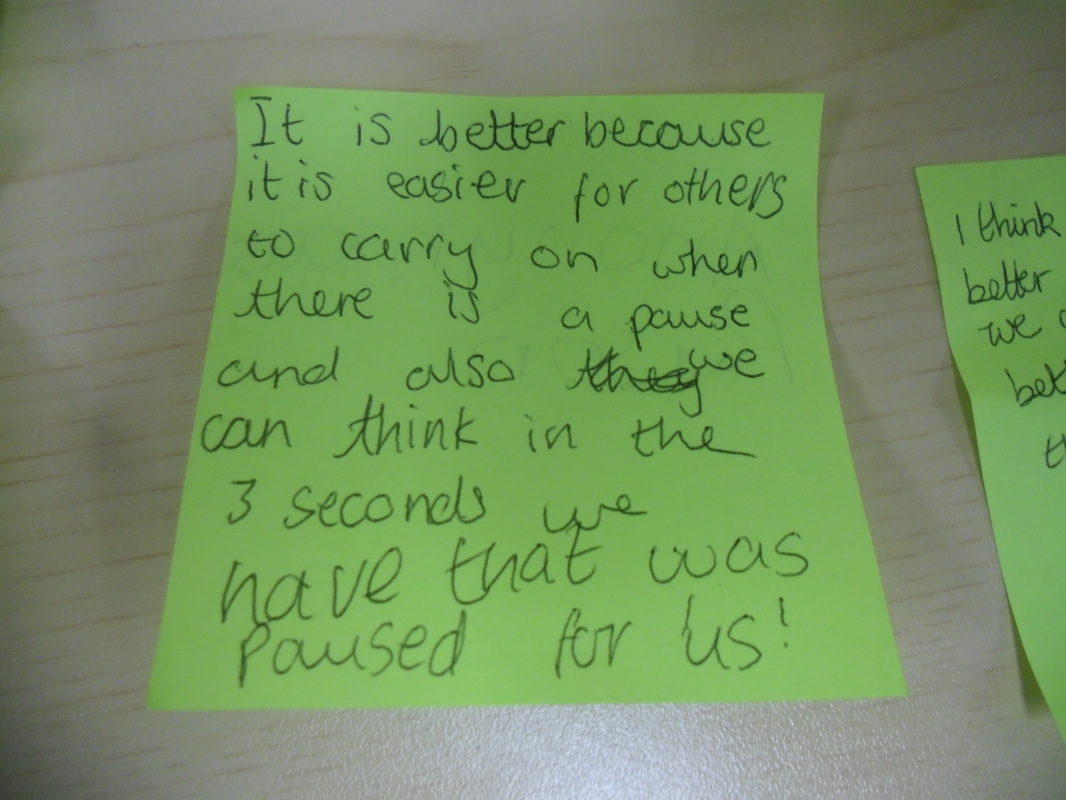 It is better because
it is easier for others
to carry on when
there is a pause
and also they we
can think in the
3 seconds we
have that was
paused for us!
I think
better
we
bet